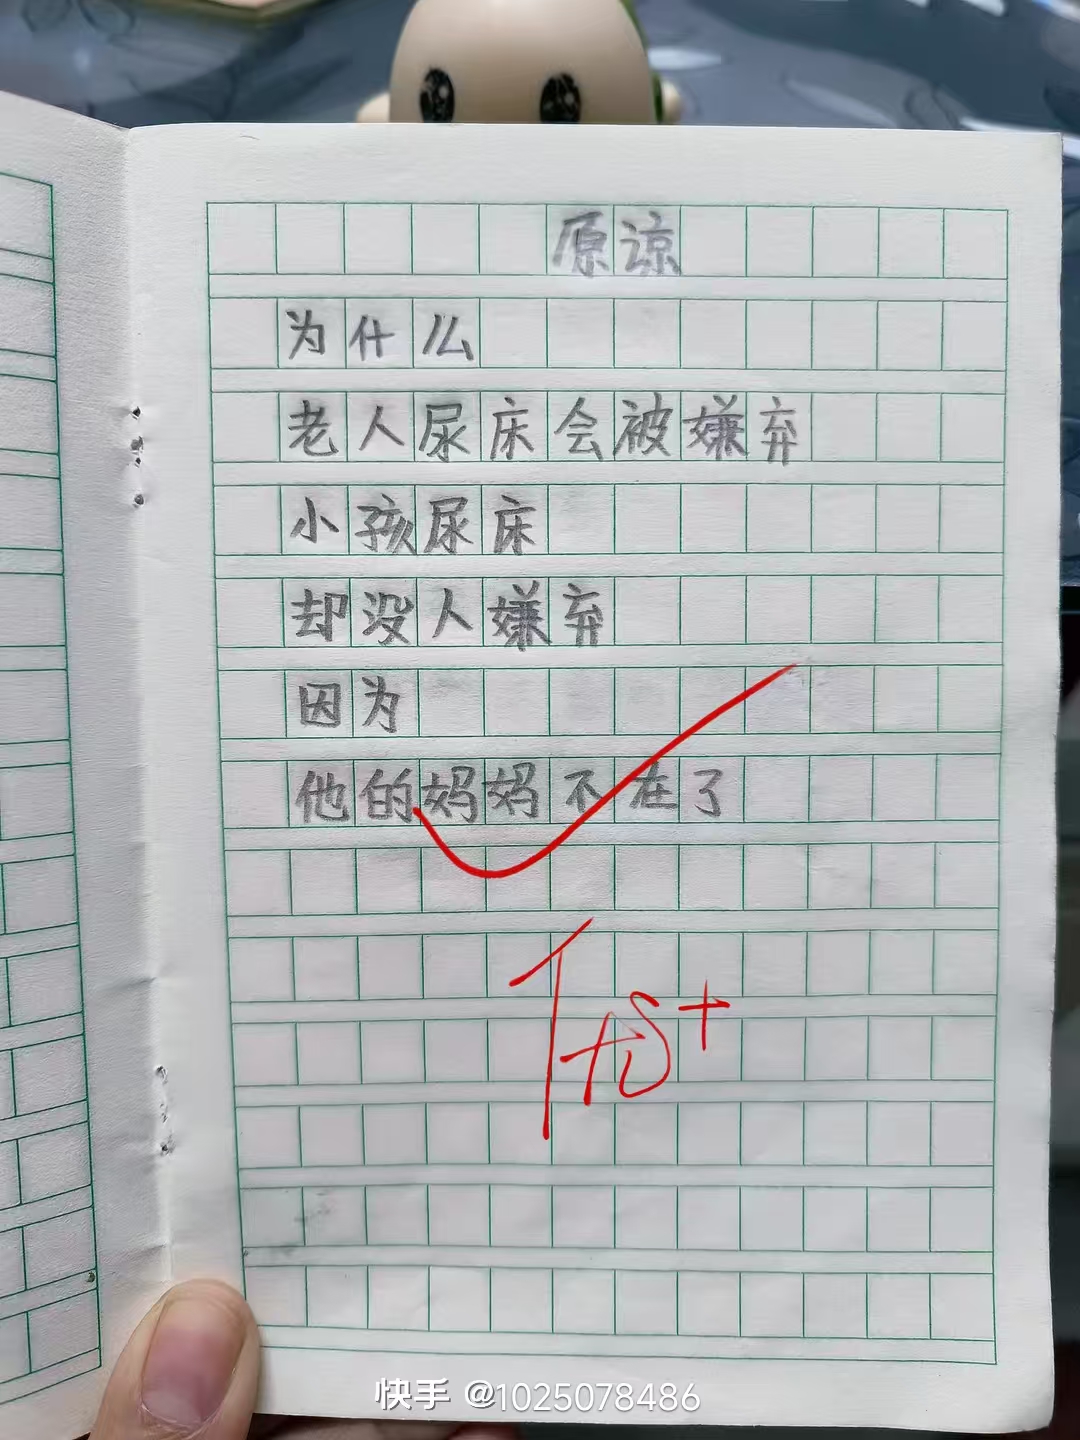 原谅
为什么
老人尿床会被嫌弃
小孩尿床
却没人嫌弃
因为
他的妈妈不在了
优+
快手 @1025078486